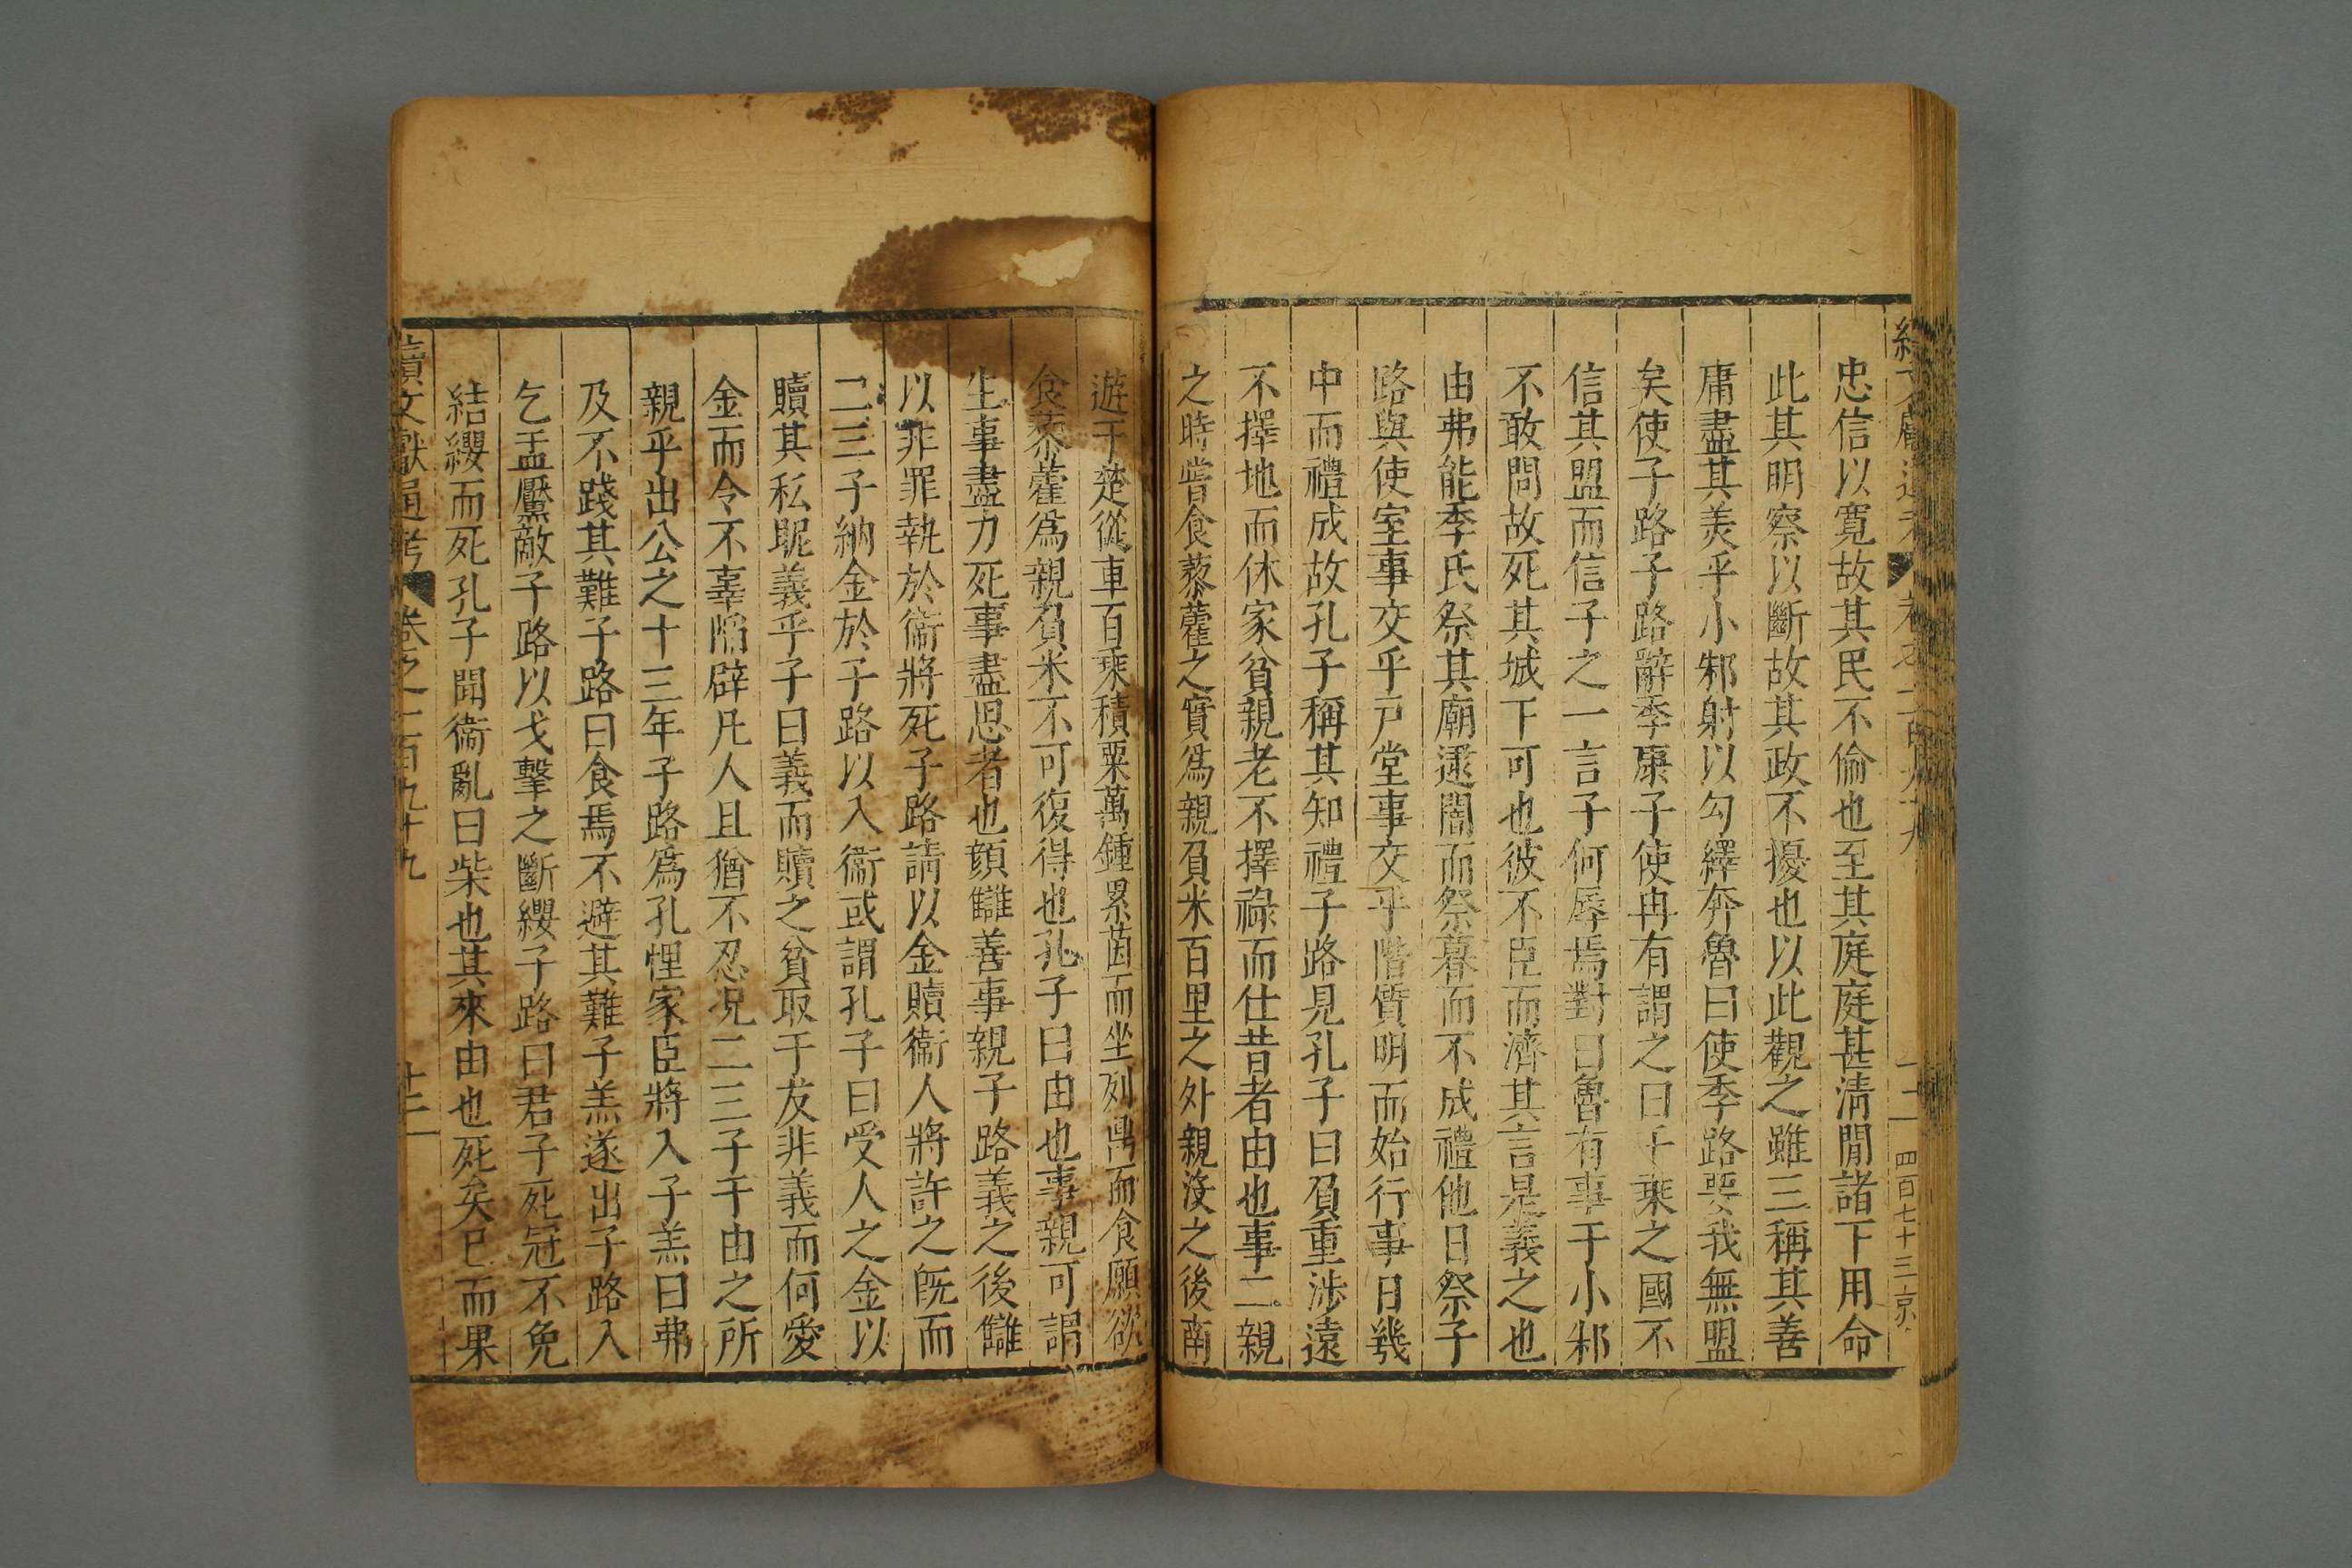 忠信以寬故其民不偷也至其庭庭甚清閒諸下用命
此其明察以斷故其政不擾也以此觀之雖三稱其善
庸盡其美乎小邾射以勾繹奔魯曰使季路要我無盟
矣使子路子路辭季康子使冉有謂之曰千乘之國不
信其盟而信子之一言子何辱焉對曰魯有事于小邾
不敢問故死其城下可也彼不臣而濟其言是義之也
由弗能季氏祭其廟逮闇而祭暮而不成禮他日祭子
路與使室事交乎戶堂事交乎階質明而始行事日幾
中而禮成故孔子稱其知禮子路見孔子曰負重涉遠
不擇地而休家貧親老不擇祿而仕昔者由也事二親
之時嘗食藜藿之實爲親負米百里之外親沒之後南
遊于楚從車百乘積粟萬鍾累茵而坐列鼎而食願欲
食藜藿爲親負米不可復得也孔子曰由也事親可謂
生事盡力死事盡思者也顔讎善事親子路義之後讎
以非罪執於衞將死子路請以金贖衞人將許之既而
二三子納金於子路以入衞或謂孔子曰受人之金以
贖其私昵義乎子曰義而贖之貧取于友非義而何愛
金而令不辜陷辟凡人且猶不忍况二三子于由之所
親乎出公之十三年子路爲孔悝家臣將入子羔曰弗
及不踐其難子路曰食焉不避其難子羔遂出子路入
乞盂黶敵子路以戈擊之斷纓子路曰君子死冠不免
結纓而死孔子聞衞亂曰柴也其來由也死矣已而果
續文獻通考 卷之一百九十九 十二
四百七十三 京